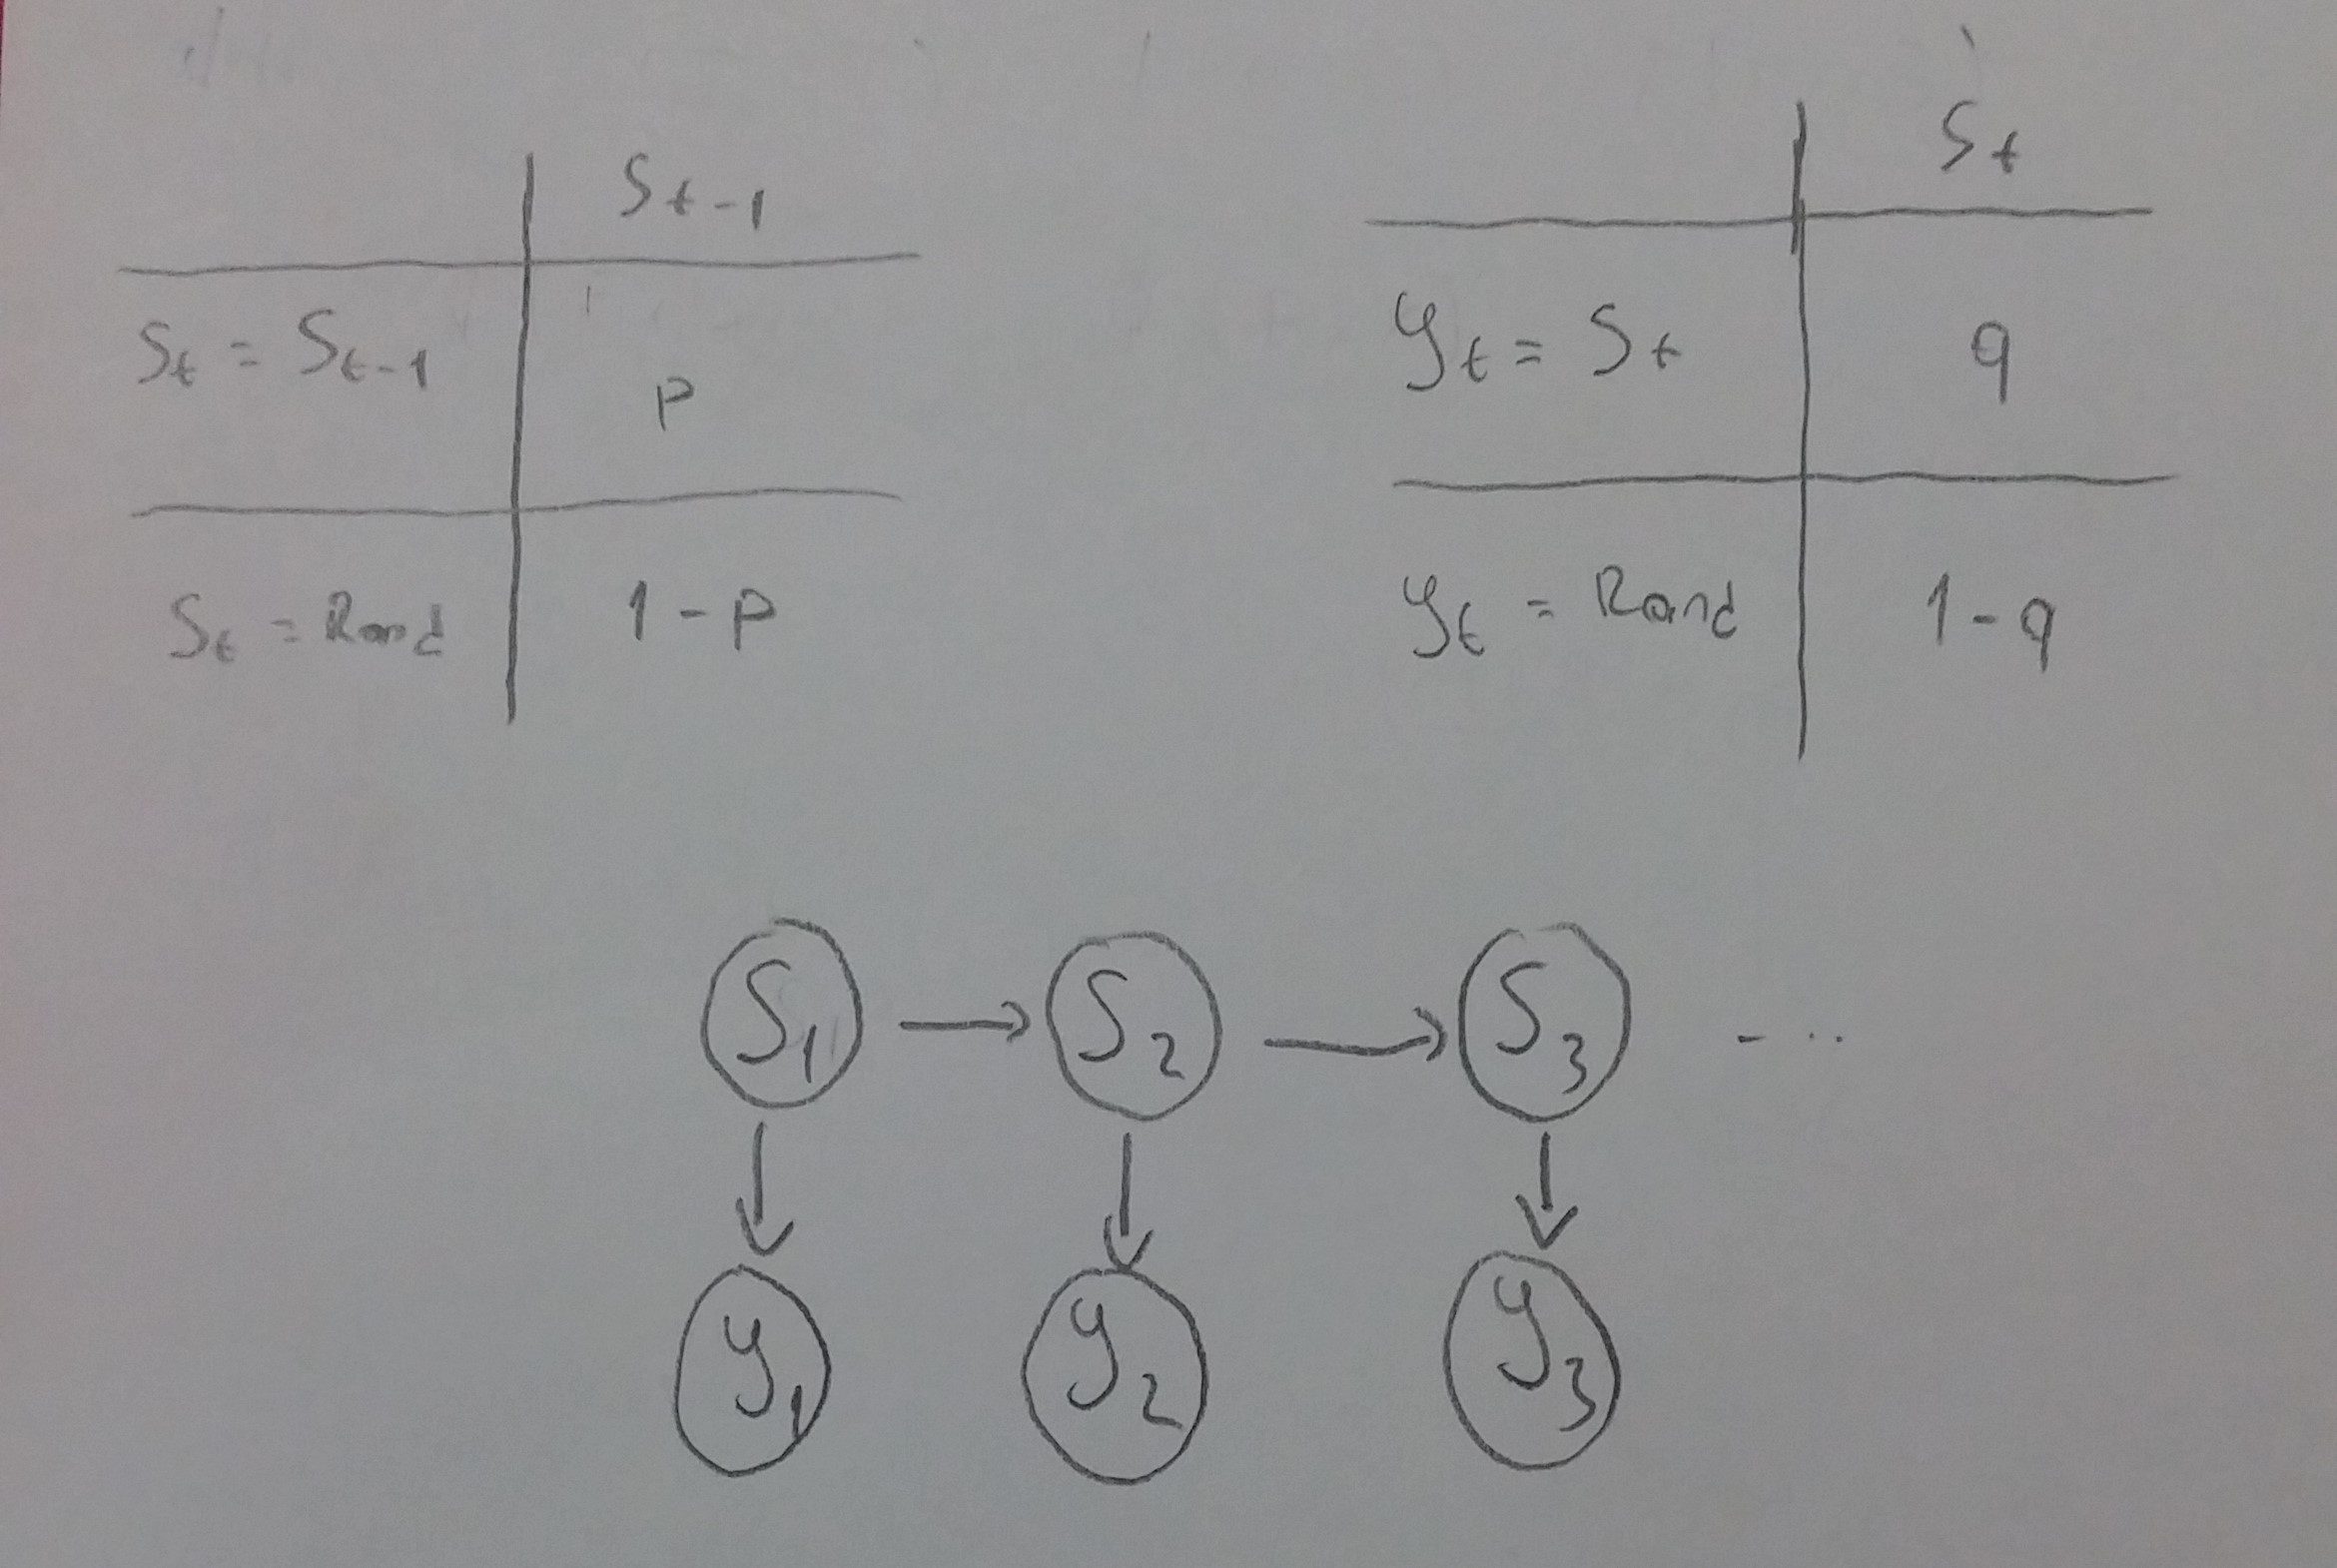 S_{t-1}
S_t = S_{t-1} p
S_t = Rand 1-p
S_t
y_t = S_t q
y_t = Rand 1-q
S_1 → S_2 → S_3 - ...
y_1 y_2 y_3